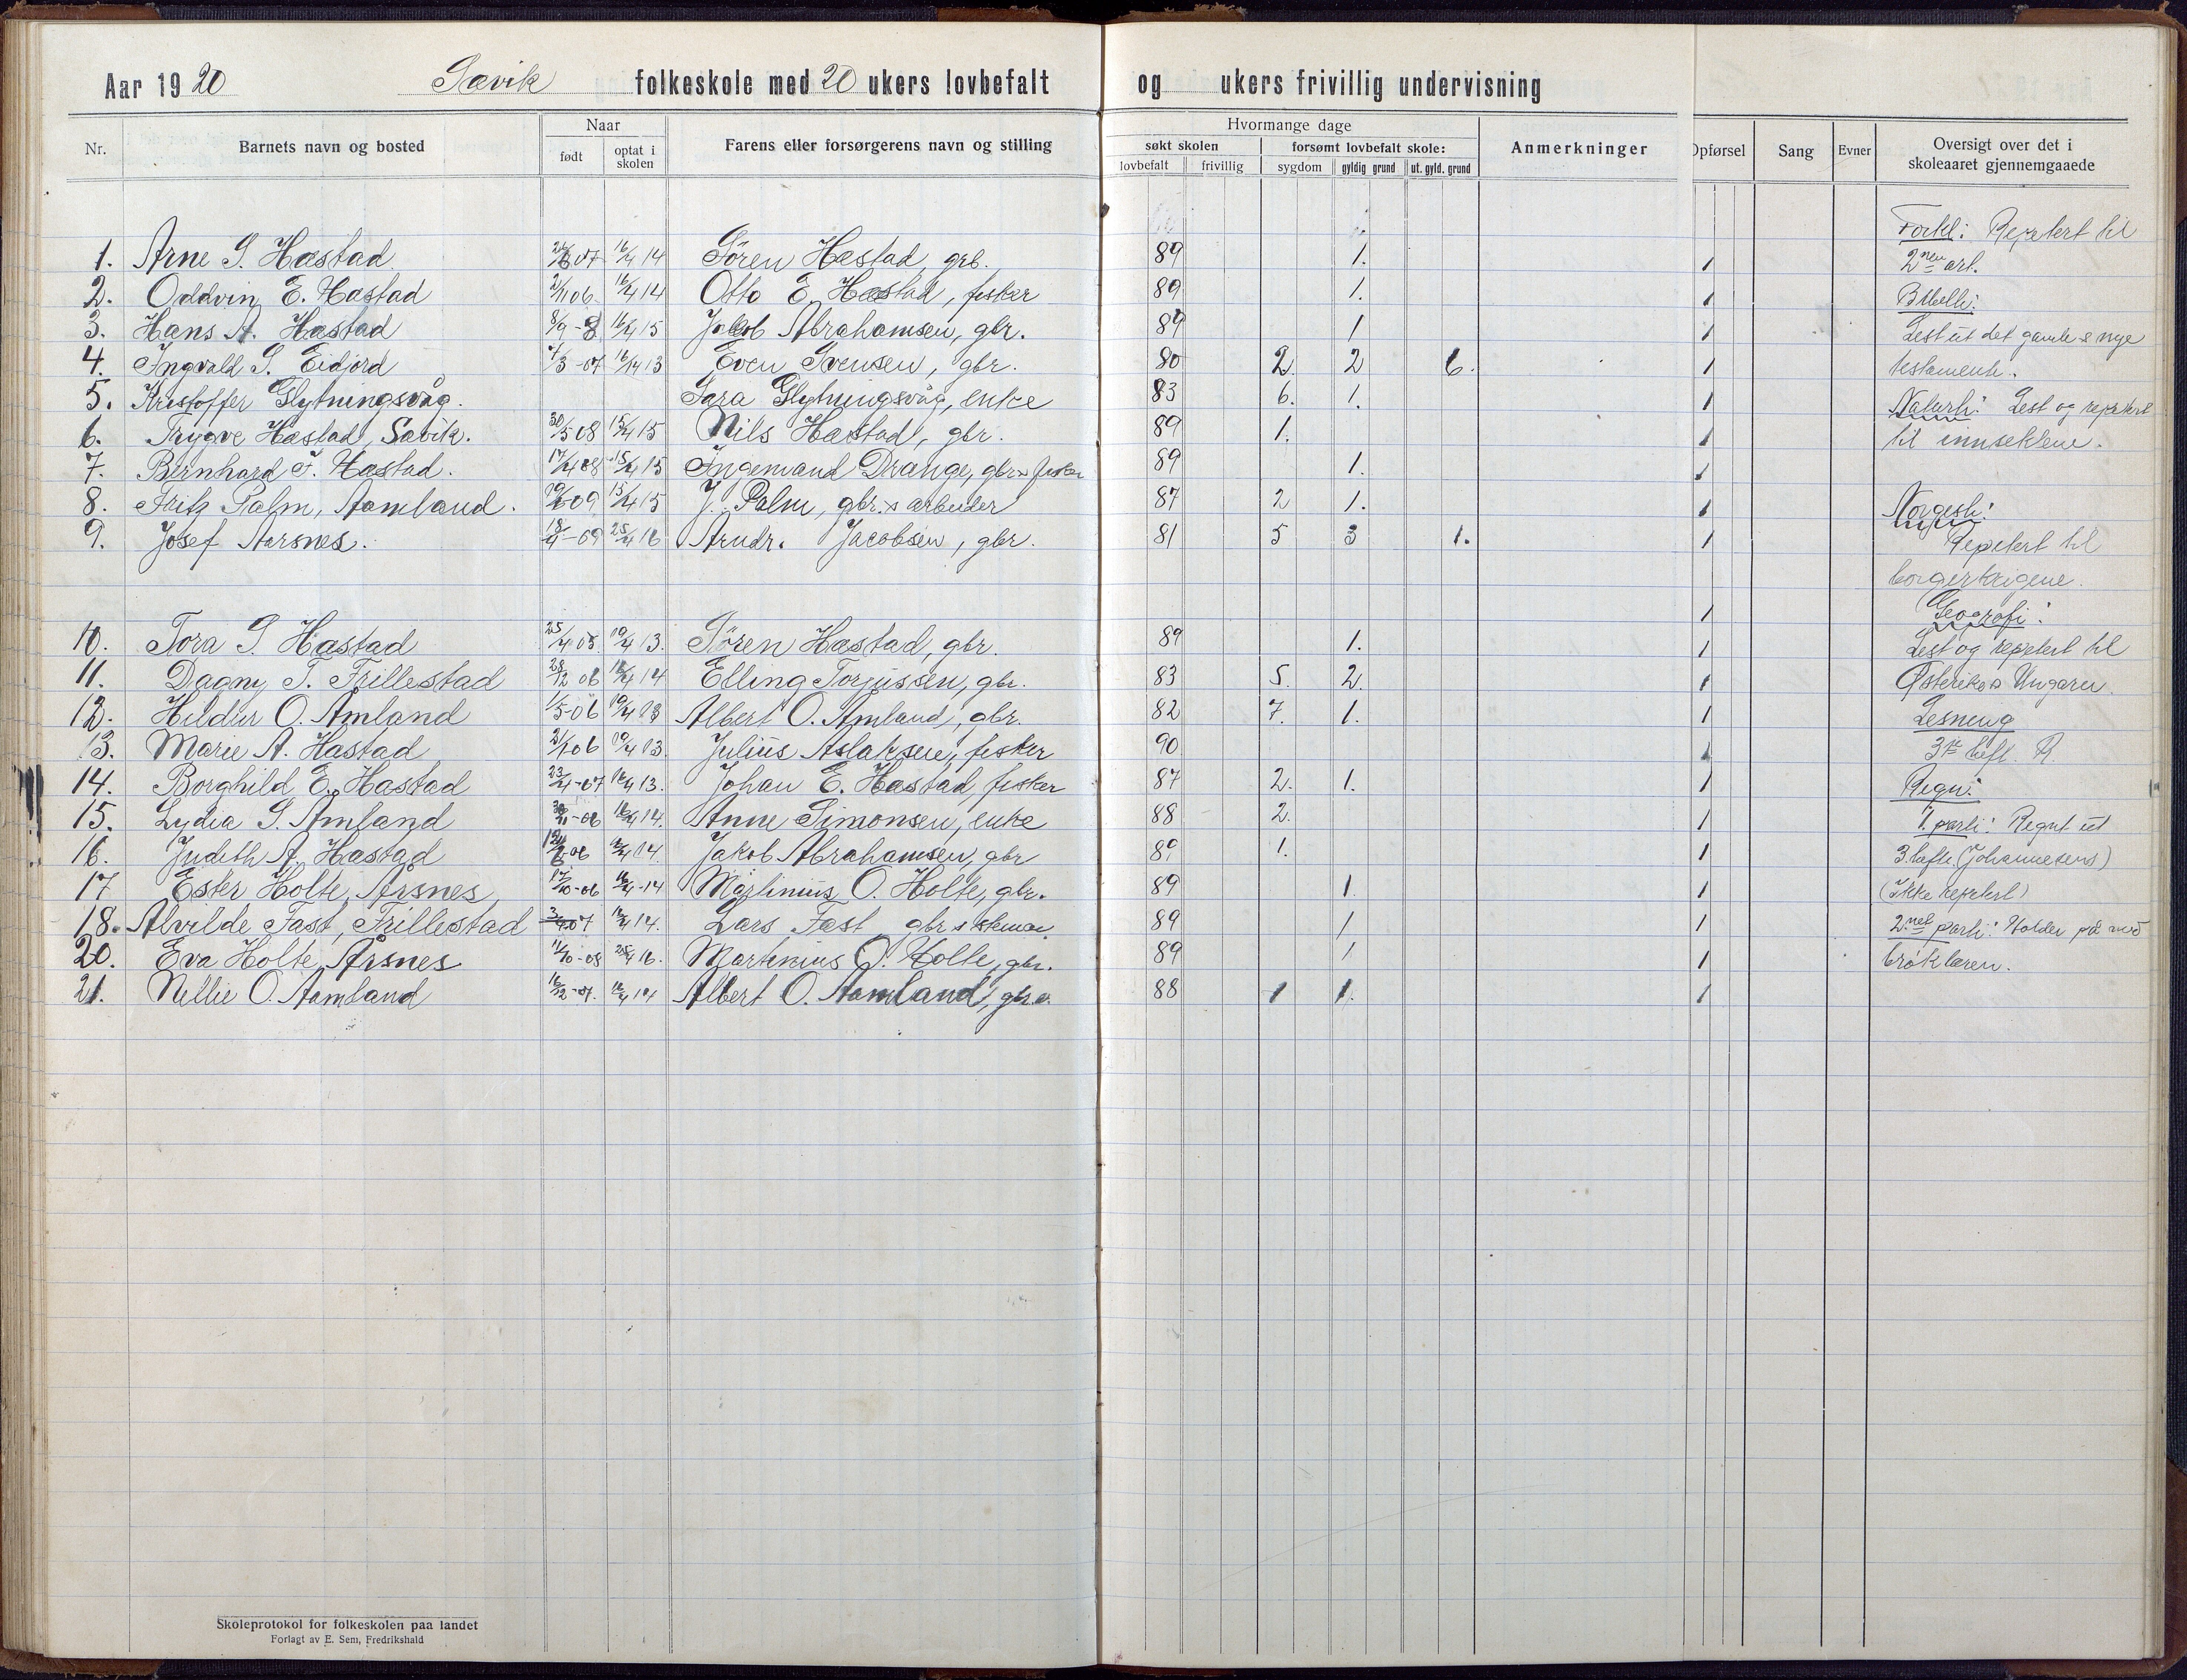 Aar 1920 Sævik folkeskole med 20 ukers lovbefalt og ukers frivillig undervisning
Nr. Barnets navn og bosted Naar født optat i skolen Farens eller forsørgerens navn og stilling Hvormange dage søkt skolen lovbefalt frivillig forsømt lovbefalt skole: sygdom gyldig grund ut. gyld. grund Anmerkninger Opførsel Sang Evner Oversigt over det i skoleaaret gjennemgaaede
Forkl: Repetert til
1. Arne S. Hæstad 07 16/4 14 Søren Hæstad grb. 89 1. 1 2nen art.
2. Oddvin E. Hæstad 2/11 06. 16/4 14 Otto E. Hæstad, fisker 89 1. 1 Bibelh:
3. Hans A. Hæstad 8/9 -8 16/4 15 Jakob Abrahamsen, gbr. 89 1 1 Lest ut det gamle & nye
4. Ingvald S. Eidjord /3 -07 16/4 13 Even Svensen, gbr. 80 2. 2 6. 1 testamente.
5. Kristoffer Glytningsvåg. Sara Glytningsvåg, enke 83 6. 1. 1 Naturh: Lest og repetert
6. Trygve Hæstad, Sævik. 30/5 08 15/4 15 Nils Hæstad, gbr. 89 1. 1 til innsektene.
7. Bernhard F. Hæstad. 17/4 08 15/4 15 Ingemand Drange, gbr. & fisker 89 1. 1
8. Fritz Palm, Aamland. 09 15/4 15 J. Palm, gbr. & arbeider 87 2 1. 1 Norgesh:
9. Josef Aarsnes. 18/4 -09 25/4 16 Arndr. Jacobsen, gbr. 81 5 3 1. 1 Repetert til
borgerkrigene.
1 Geografi:
10. Tora S. Hæstad 25/4 05. 19/4 13. Søren Hæstad, gbr. 89 1. 1 Lest og repetert til
11. Dagny T. Trillestad 28/12 06 16/4 14 Elling Torjussen, gbr. 83 5. 2. 1 Østerike & Ungarn.
12. Hildur O. Åmland 1/5 -06 19/4 13 Albert O. Åmland, gbr. 82 7. 1. 1 Lesning
13. Marie A. Hæstad 21/1 06 19/4 13. Julius Aslaksen, fisker 90 1 3die heft. R
14. Borghild E. Hæstad 23/4 -07 16/4 13. Johan E. Hæstad, fisker 87 2. 1. 1 Regn:
15. Lydia S. Åmland -06 16/4 14. Anne Simonsen, enke 88 2. 1 1. parti: Regnt ut
16. Judith A. Hæstad 06 16/4 14. Jakob Abrahamsen, gbr 89 1. 1 3. hefte (Johannesens)
17 Ester Holte, Årsnes 17/10 -06 16/4 -14 Martinius O. Holte, gbr. 89 1. 1 (Ikke repetert)
18. Alvilde Fast, Trillestad 07 16/4 14. Lars Fast gbr & 89 1 1 2.net parti: Holder på med
20. Eva Holte, Årsnes 11/10 -08 25/4 16. Martinius O. Holte, gbr. 89 1 1 brøklæren.
21. Nellie O. Aamland 16/12 -07. 16/4 14 Albert O. Aamland, gbr. 88 1 1. 1
Skoleprotokol for folkeskolen paa landet
Forlagt av E. Sem, Fredrikshald